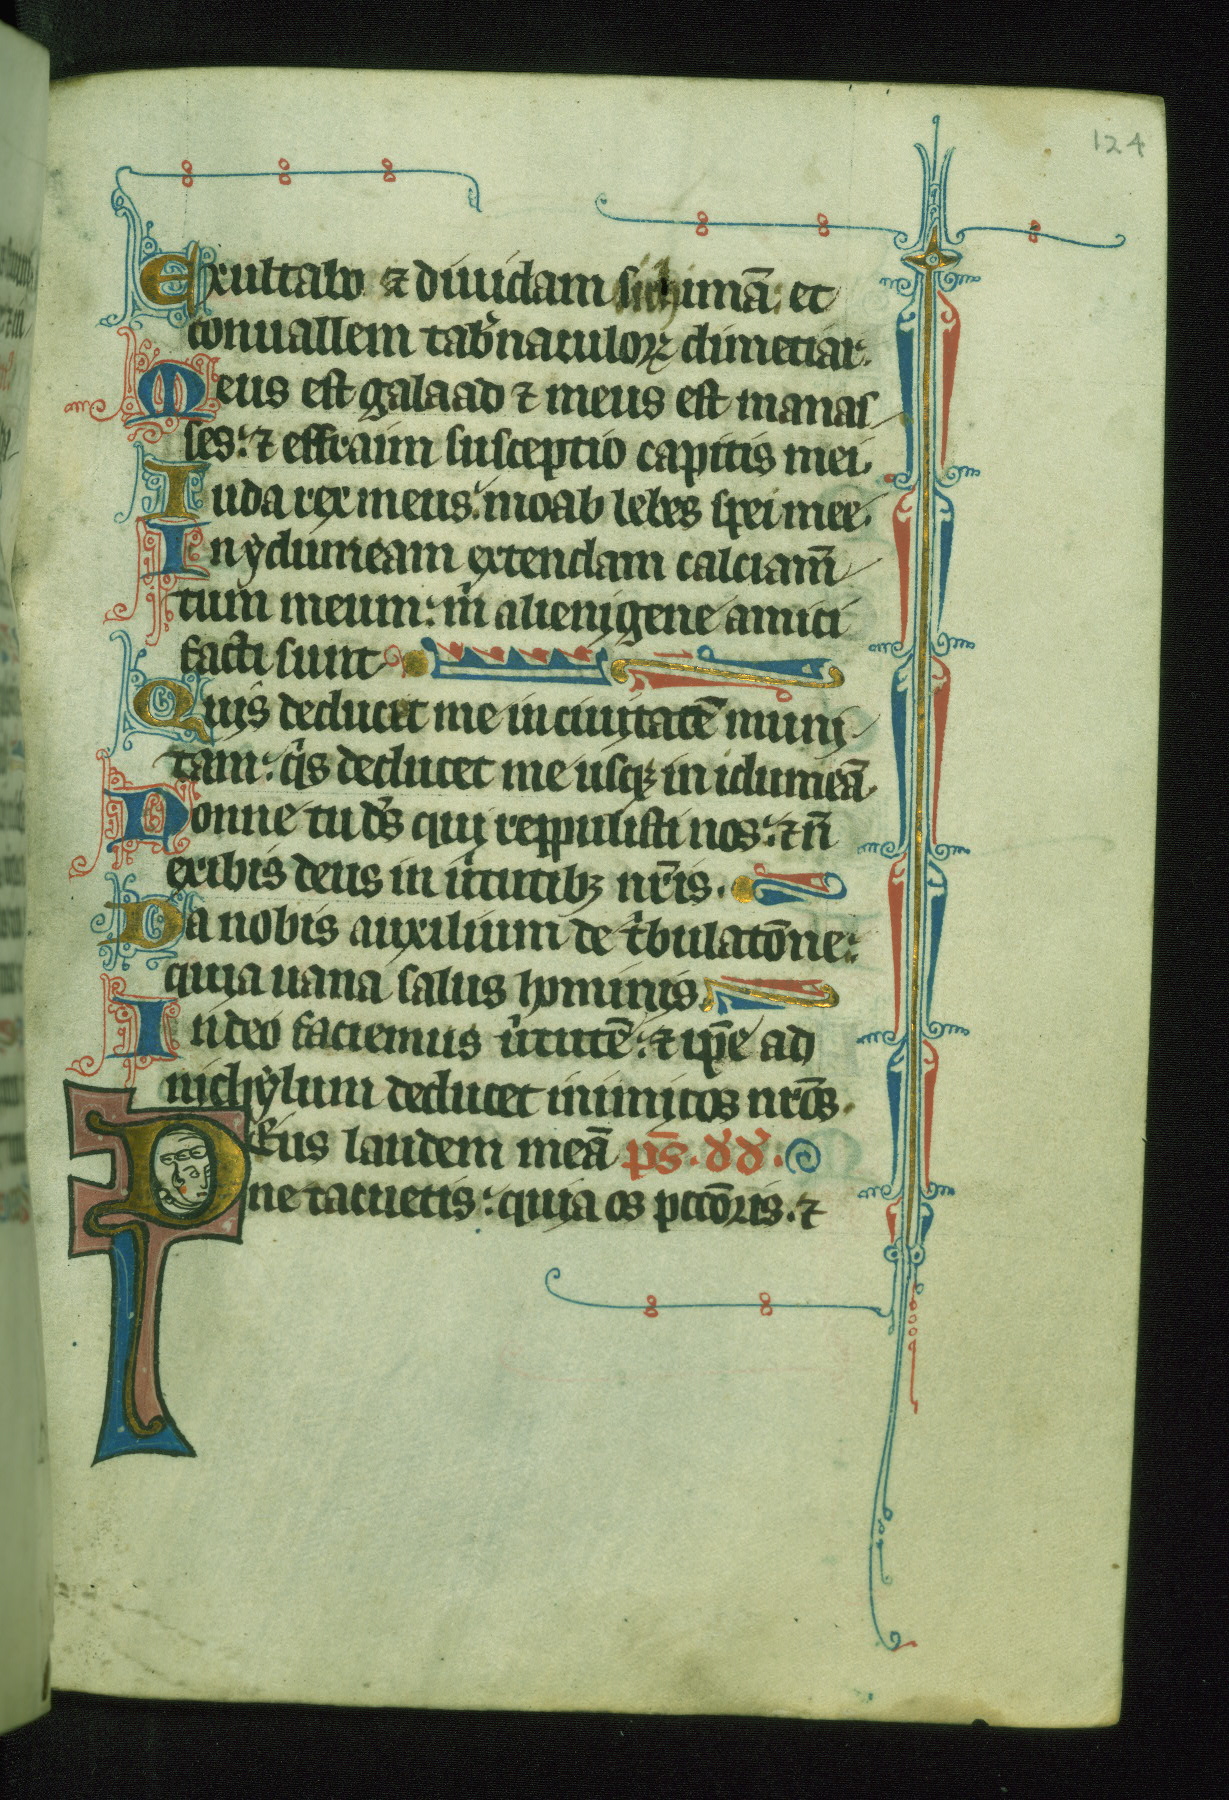 124
Exultabo ⁊ diuidam sichimā et
conuallem tab̾naculoꝝ dimetiar.
Meus est galaad ⁊ meus est manas
ses: ⁊ effraim susceptio capitis mei.
Iuda rex meus: moab lebes spei mee.
In ydumeam extendam calciam̄
tum meum: m̄ alienigene amici
facti sunt
Quis deducet me in ciuitatē muni
tam: q̾s deducet me usqꝫ in idumeā.
Nonne tu ds̄ qui reppulisti nos: ⁊ n̄
exibis deus in u̾tutibꝫ nr̄is.
Da nobis auxilium de t̾bulatōne:
quia uana salus hominis.
In deo faciemus u̾tutē: ⁊ ip̄e ad
nichylum deducet inimicos nr̄os.
DEus laudem meā ps̄. dd.
ne tacuetis: quia os pctōris. ⁊